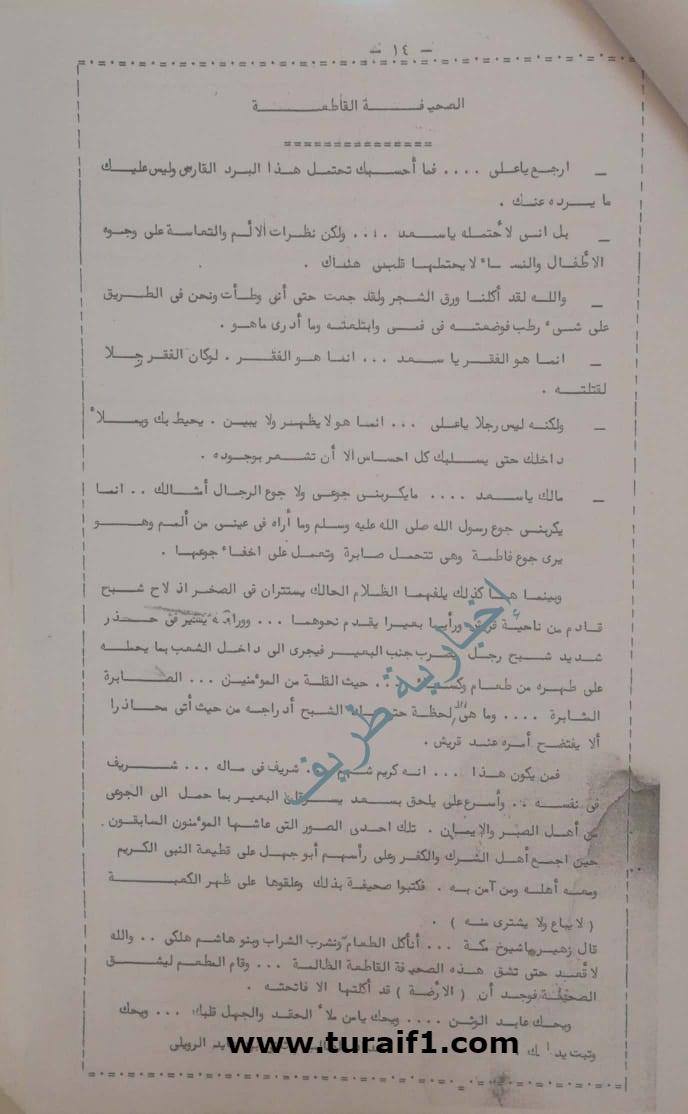 ـ ١٤ ـ
الصحيفة القاطعة
ـ ارجع ياعلى .... فما أحسبك تحتمل هذا البرد القارص وليس عليك
ما يرده عنك .
ـ بل انى لأحتمله ياسعد .... ولكن نظرات الالم والتعاسة على وجوه
الأطفال والنساء لا يحتملها قلبى هناك .
ـ والله لقد أكلنا ورق الشجر ولقد جعت حتى أنى وطأت ونحن فى الطريق
على شىء رطب فوضعته فى فمى وابتلعته وما أدرى ماهو .
ـ انما هو الفقر يا سعد ... انما هو الفقر . لوكان الفقر رجلا
لقتلته .
ـ ولكنه ليس رجلا ياعلى ... انما هو لا يظهر ولا يبين . يحيط بك ويملأ
داخلك حتى يسلبك كل احساس الا أن تشعر بوجوده .
ـ مالك ياسعد .... مايكربنى جوعى ولا جوع الرجال أمثالك .. انما
يكربنى جوع رسول الله صلى الله عليه وسلم وما أراه فى عينى من ألم وهو
يرى جوع فاطمة وهى تتحمل صابرة وتعمل على اخفاء جوعها .
وبينما هما كذلك يلفهما الظلام الحالك يستتران فى الصخر اذ لاح شبح
قادم من ناحية قريش ورأيا بعيرا يقدم نحوهما ... ووراءه يسير فى حذر
شديد شبح رجل يضرب جنب البعير فيجرى الى داخل الشعب بما يحمله
على ظهره من طعام .. حيث القلة من المؤمنين ... الصابرة
الشابرة .... وما هى الا لحظة حتى الشبح أدراجه من حيث أتى محاذرا
ألا يفتضح أمره عند قريش .
فمن يكون هذا ... انه كريم شهم .. شريف فى ماله ... شريف
فى نفسه .. وأسرع على يلحق بسعد يسوقان البعير بما حمل الى الجوعى
من أهل الصبر والايمان . تلك احدى الصور التى عاشها المؤمنون السابقون .
حين اجمع أهل الشرك والكفر وعلى رأسهم أبو جهل على قطيعة النبى الكريم
ومعه أهله ومن آمن به . فكتبوا صحيفة بذلك وعلقوها على ظهر الكعبة
( لا يباع ولا يشترى منه ) .
قال زهير ياشيوخ مكة ... أنأكل الطعام ونشرب الشراب وبنو هاشم هلكى .. والله
لا قعد حتى تشق هذه الصحيفة القاطعة الظالمة ... وقام المطعم ليشق
الصحيفة فوجد أن ( الارضة ) قد أكلتها الا فاتحته .
ويحك عابد الوثن .... ويحك يامن ملأ الحقد والجهل قلبك ... ويحك
وتبت يداك الرويلى
إخبارية طريف
www.turaif1.com